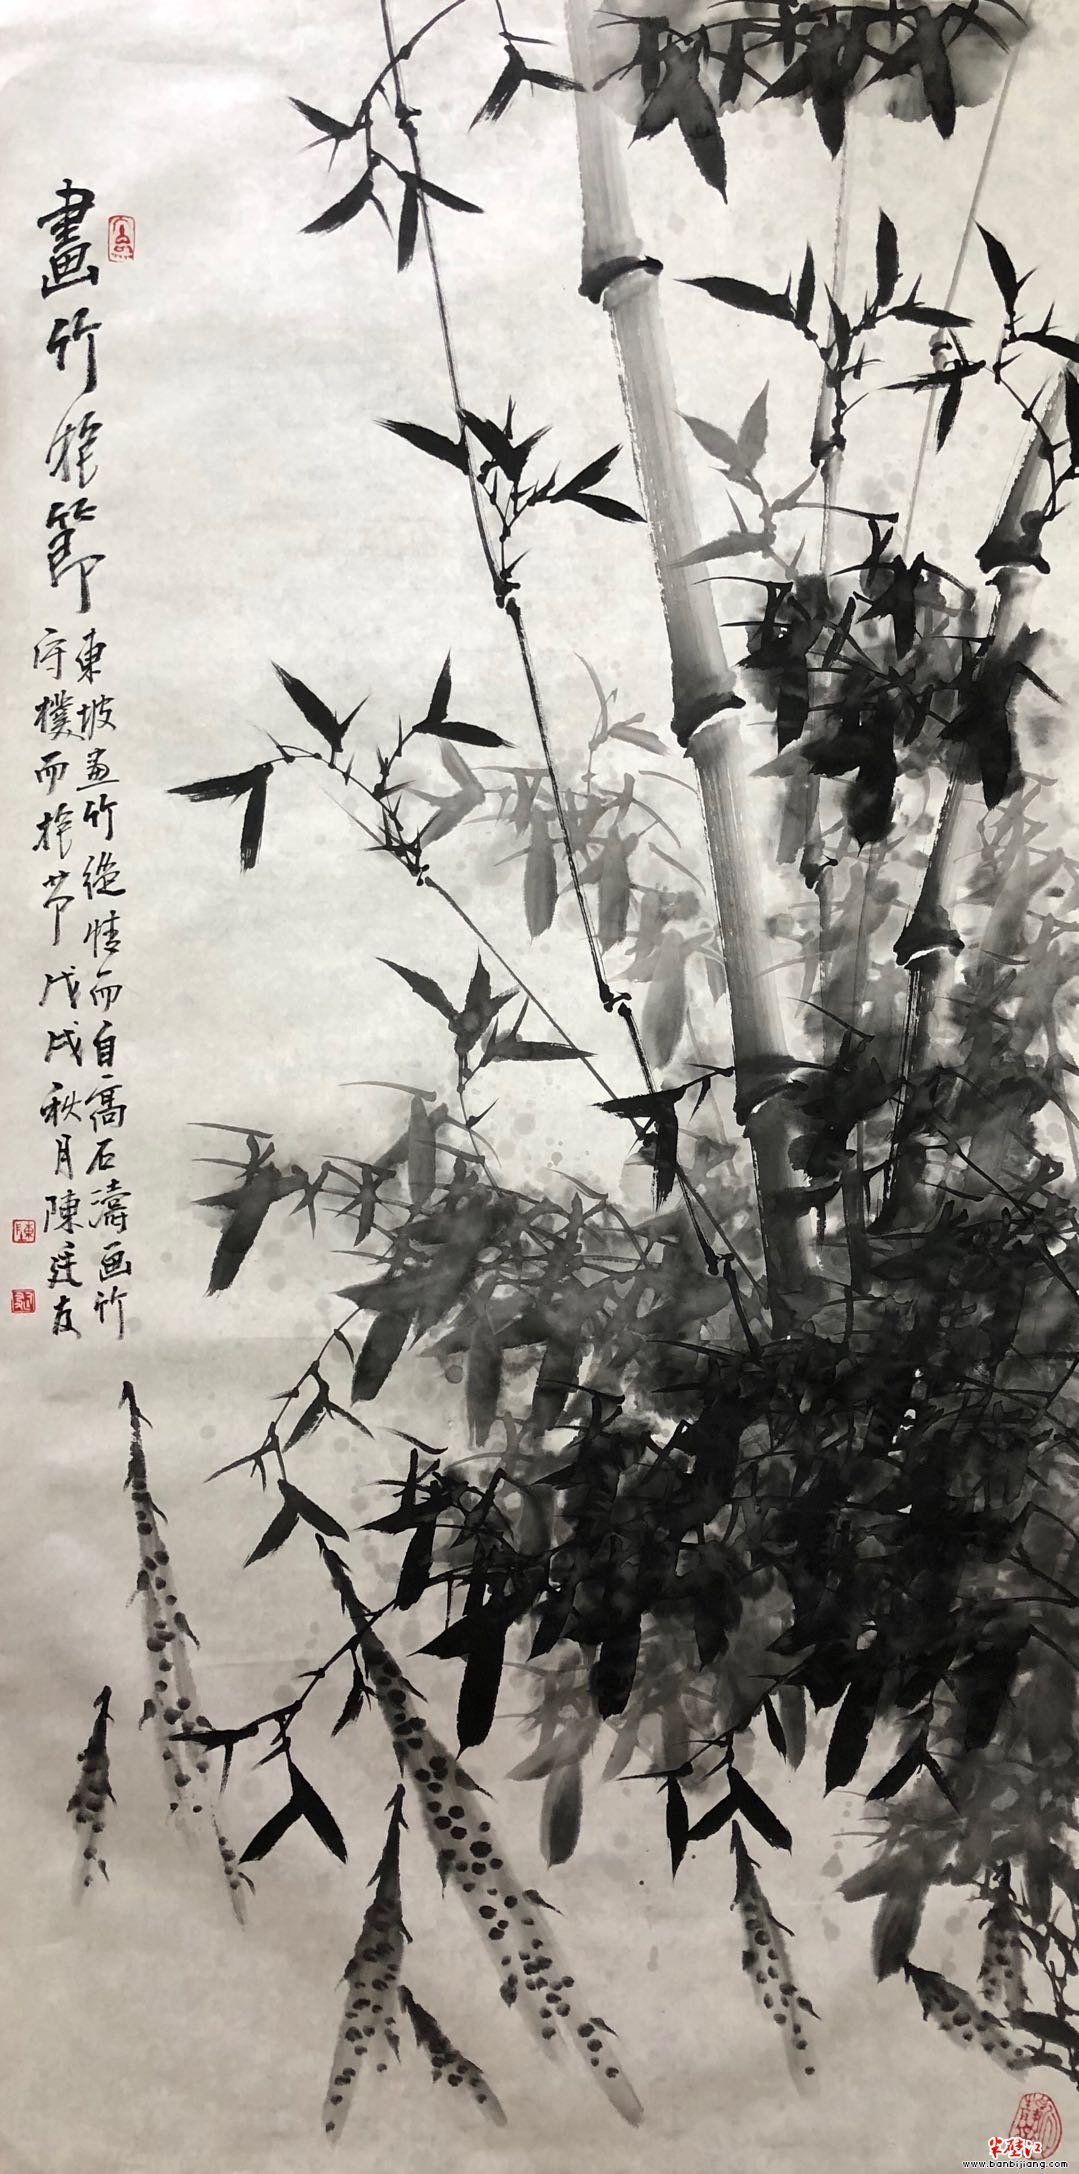 畫竹於節
東坡画竹絶情而自高石濤画竹
守樸而於节戊戌秋月陳廷友
陳
半壁江
www.banbijiang.com